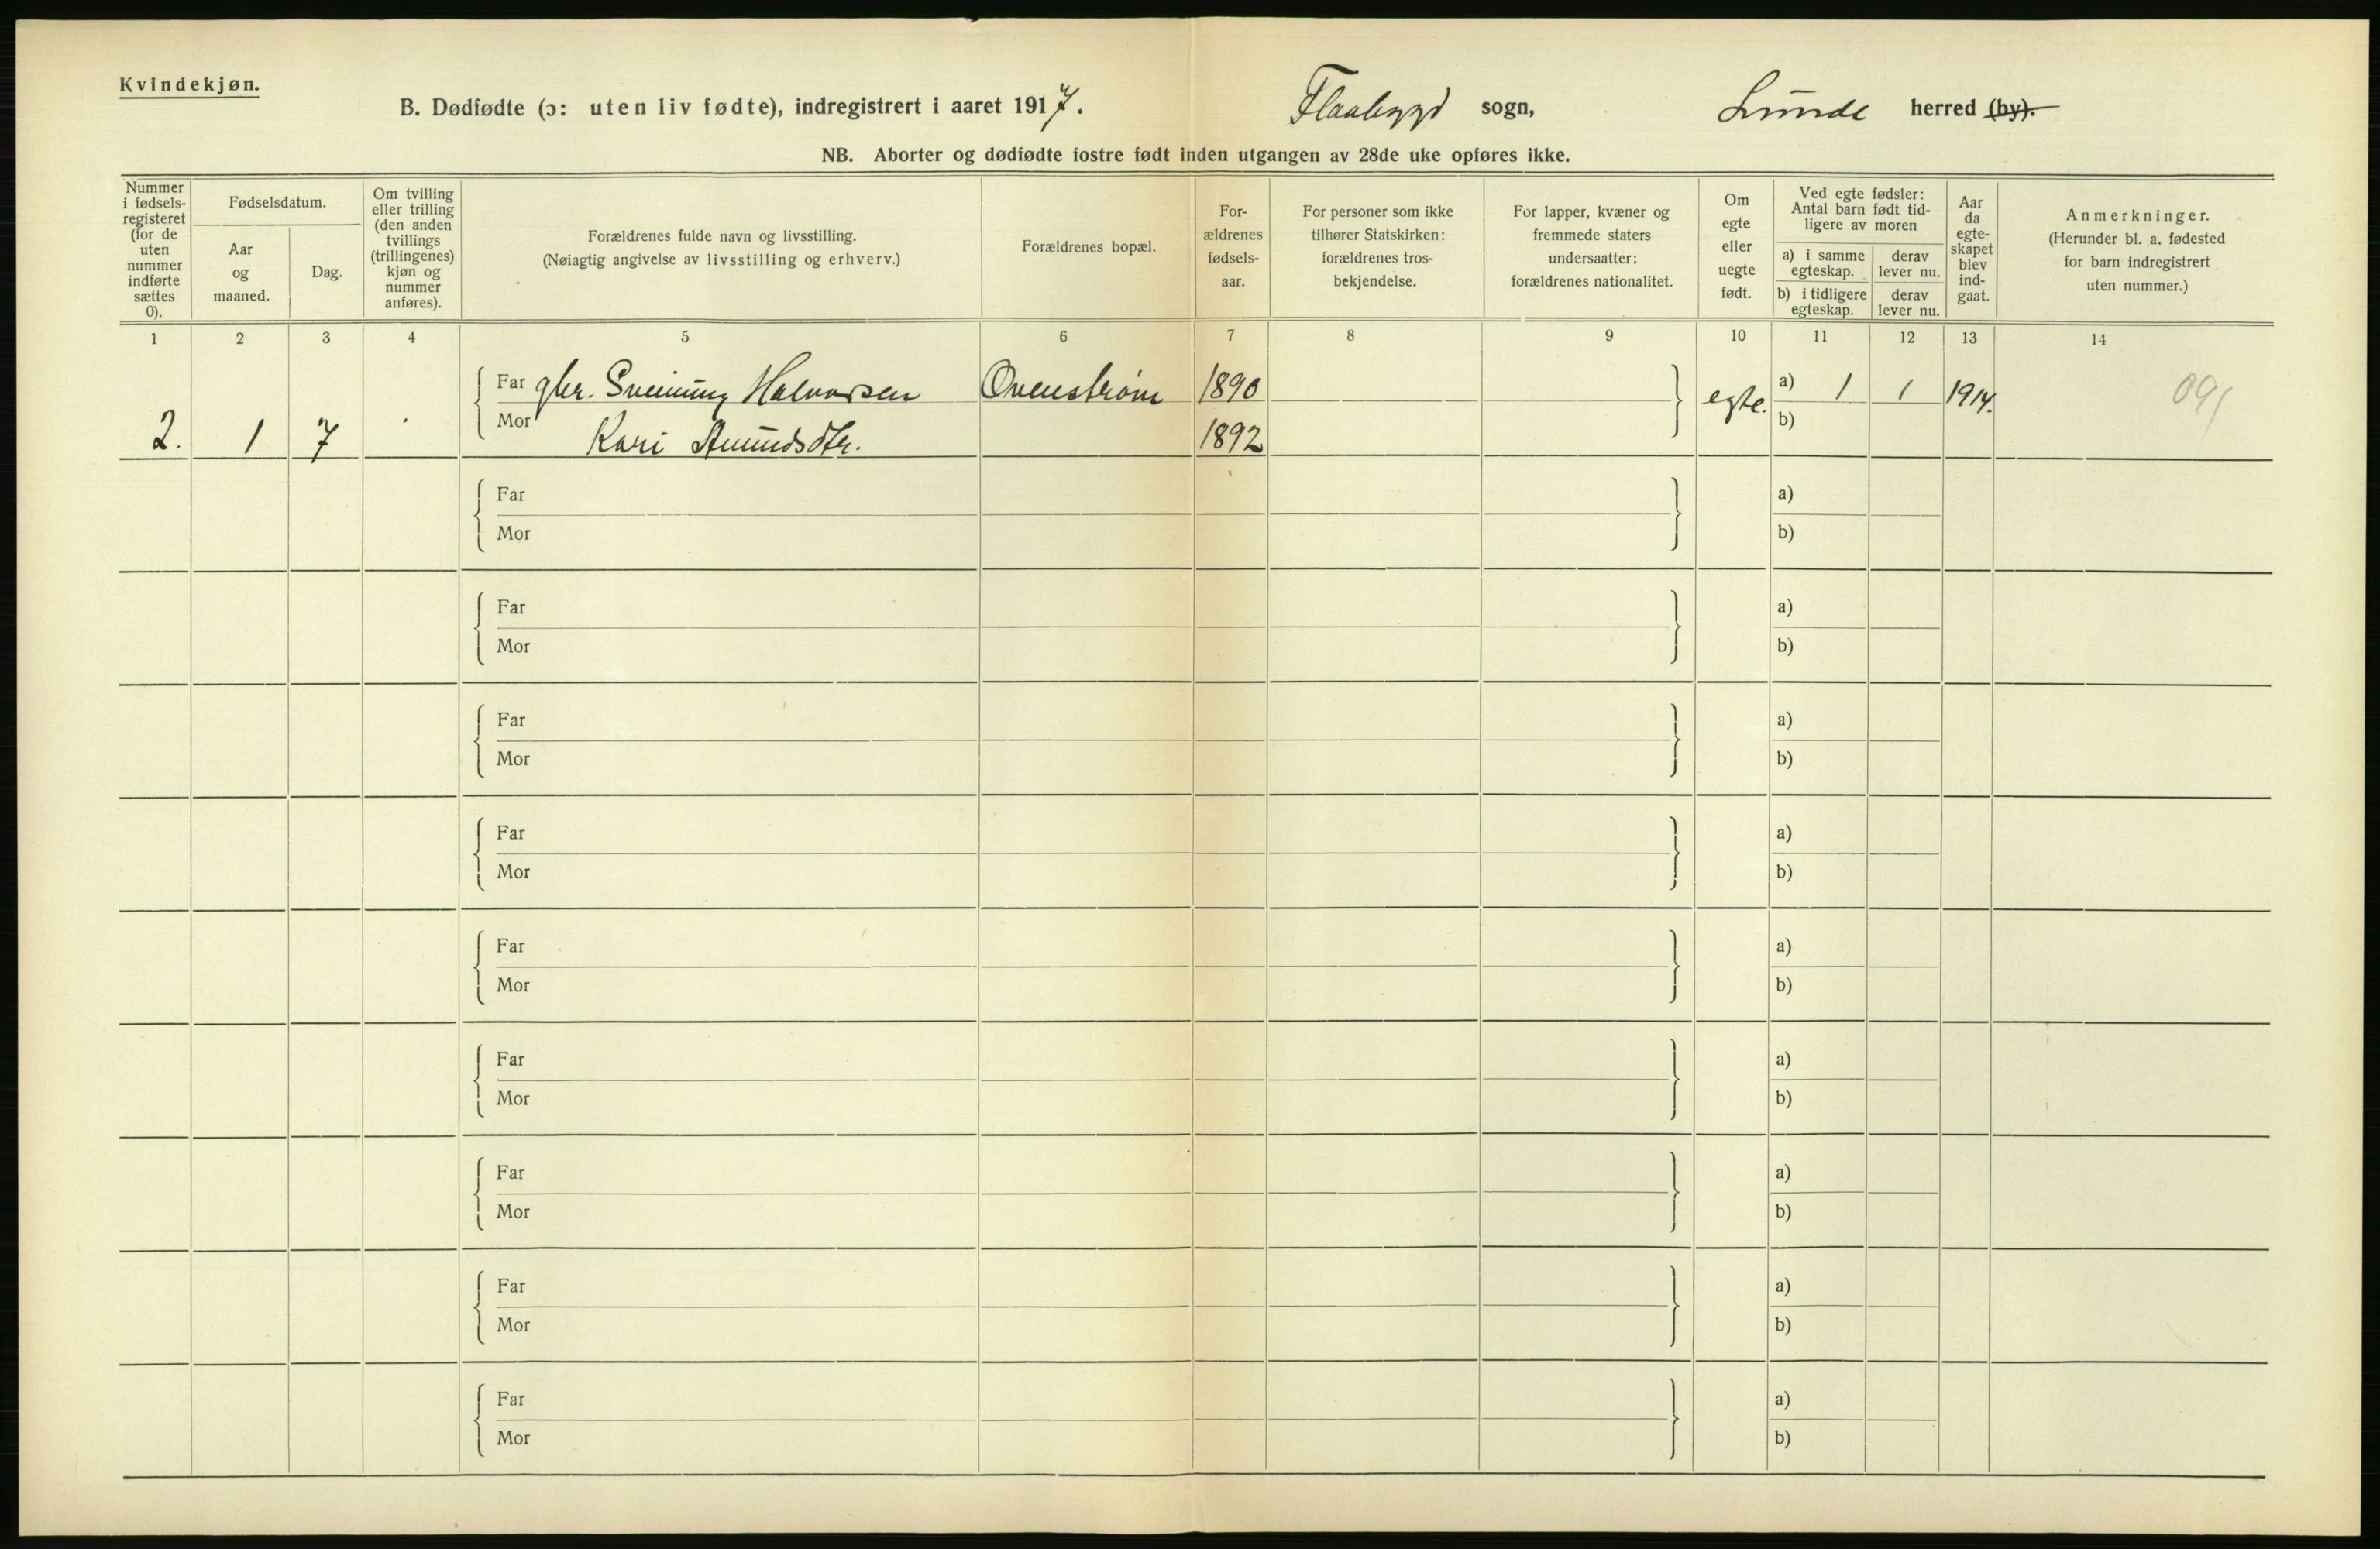 Kvindekjøn.
B. Dødfødte (ɔ: uten liv fødte), indregistrert i aaret 1917. Flaabygd sogn, Lunde herred (by).
NB. Aborter og dødfødte fostre født inden utgangen av 28de uke opføres ikke.
Nummer i fødsels-registeret (for de uten nummer indførte sættes 0).
Fødselsdatum.
Aar og maaned.
Dag.
Om tvilling eller trilling (den anden tvillings (trillingenes) kjøn og nummer anføres).
Forældrenes fulde navn og livsstilling.
(Nøiagtig angivelse av livsstilling og erhverv.)
Forældrenes bopæl.
For-ældrenes fødsels-aar.
For personer som ikke tilhører Statskirken: forældrenes tros-bekjendelse.
For lapper, kvæner og fremmede staters undersaatter: forældrenes nationalitet.
Om egte eller uegte født.
Ved egte fødsler: Antal barn født tid-ligere av moren
a) i samme egteskap.
derav lever nu.
b) i tidligere egteskap.
derav lever nu.
Aar da egte-skapet blev ind-gaat.
Anmerkninger.
(Herunder bl. a. fødested for barn indregistrert uten nummer.)
1 2 3 4 5 6 7 8 9 10 11 12 13 14
Far gbr. Sveinung Halvorsen 1890 egte. a) 1 1 1914. 091
2. 1 7 Mor Kari Amundsdtr. 1892 b)
Far a)
Mor b)
Far a)
Mor b)
Far a)
Mor b)
Far a)
Mor b)
Far a)
Mor b)
Far a)
Mor b)
Far a)
Mor b)
Far a)
Mor b)
Far a)
Mor b)